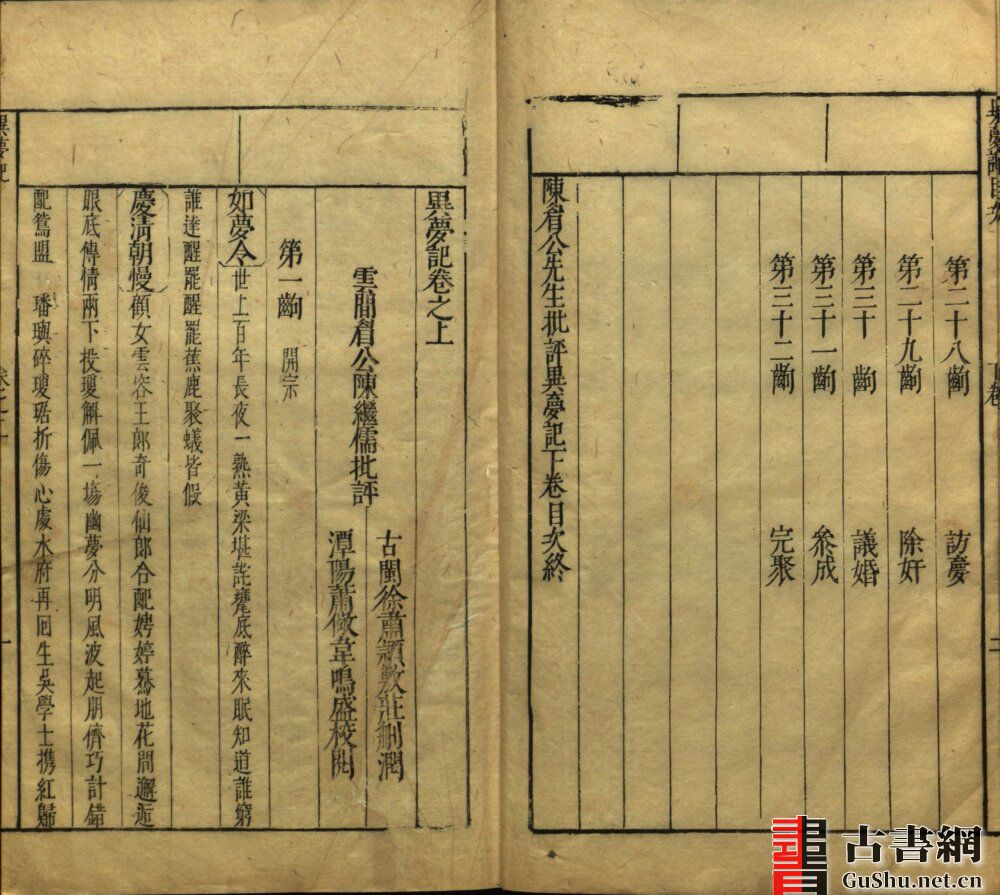 第二十八齣 訪慶
第二十九齣 除奸
第三十齣 議婚
第三十一齣 叅成
第三十二齣 完聚
陳眉公先生批評異夢記下卷目次終
異夢記卷之上
雲間眉公陳繼儒批評
古閩徐肅頴敷莊刪潤
潭陽蕭儆韋鳴盛校閱
第一齣 開宗
如夢令 世上百年長夜一熟黃梁堪詫甕底醉來眠知道誰窮
誰達醒罷醒罷蕉鹿聚蟻皆假
慶清朝慢 顧女雲容王郎奇俊仙郎合配娉婷驀地花間邂逅
眼底傳情兩下投瓊解佩一塲幽夢分明風波起朋儕巧計錯
配鴛盟 璠璵碎瓊琚折傷心處水府再回生吳學士携紅歸
異夢記
書
古書網
GuShu.net.cn